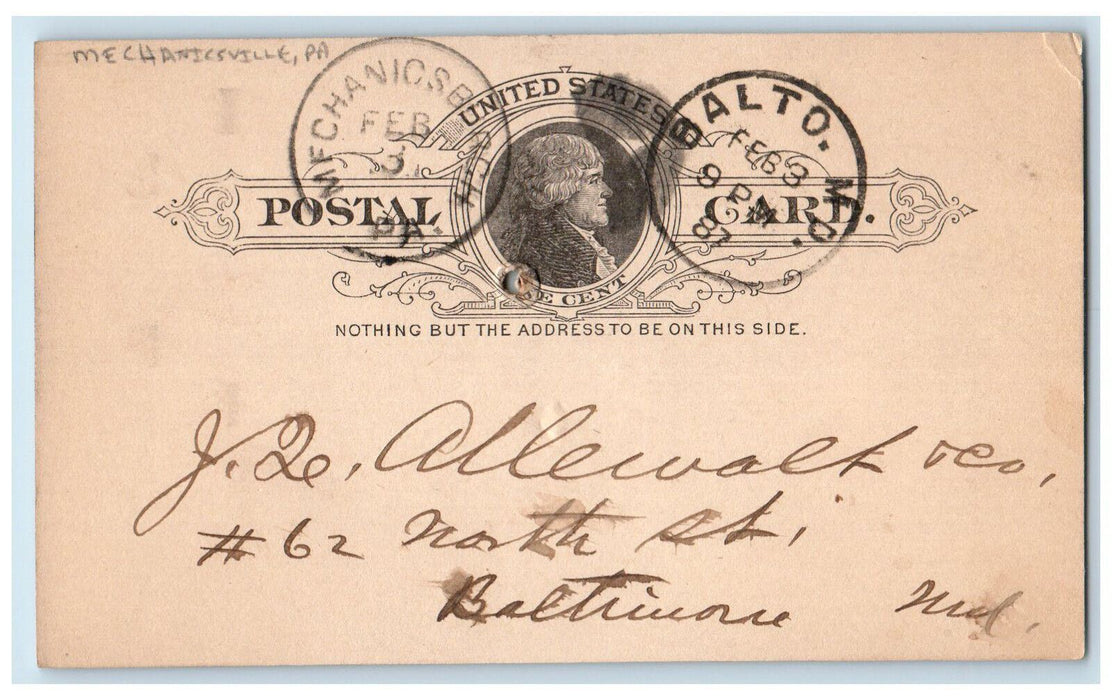 MECHANICSVILLE, PA
MECHANICSBURG
FEB
3
PA.
UNITED STATES
BALTO. M.D.
FEB 3
9 PM
87
POSTAL CARD.
ONE CENT
NOTHING BUT THE ADDRESS TO BE ON THIS SIDE.
J. Q. Allewalt & Co,
#62 North St,
Baltimore Md.